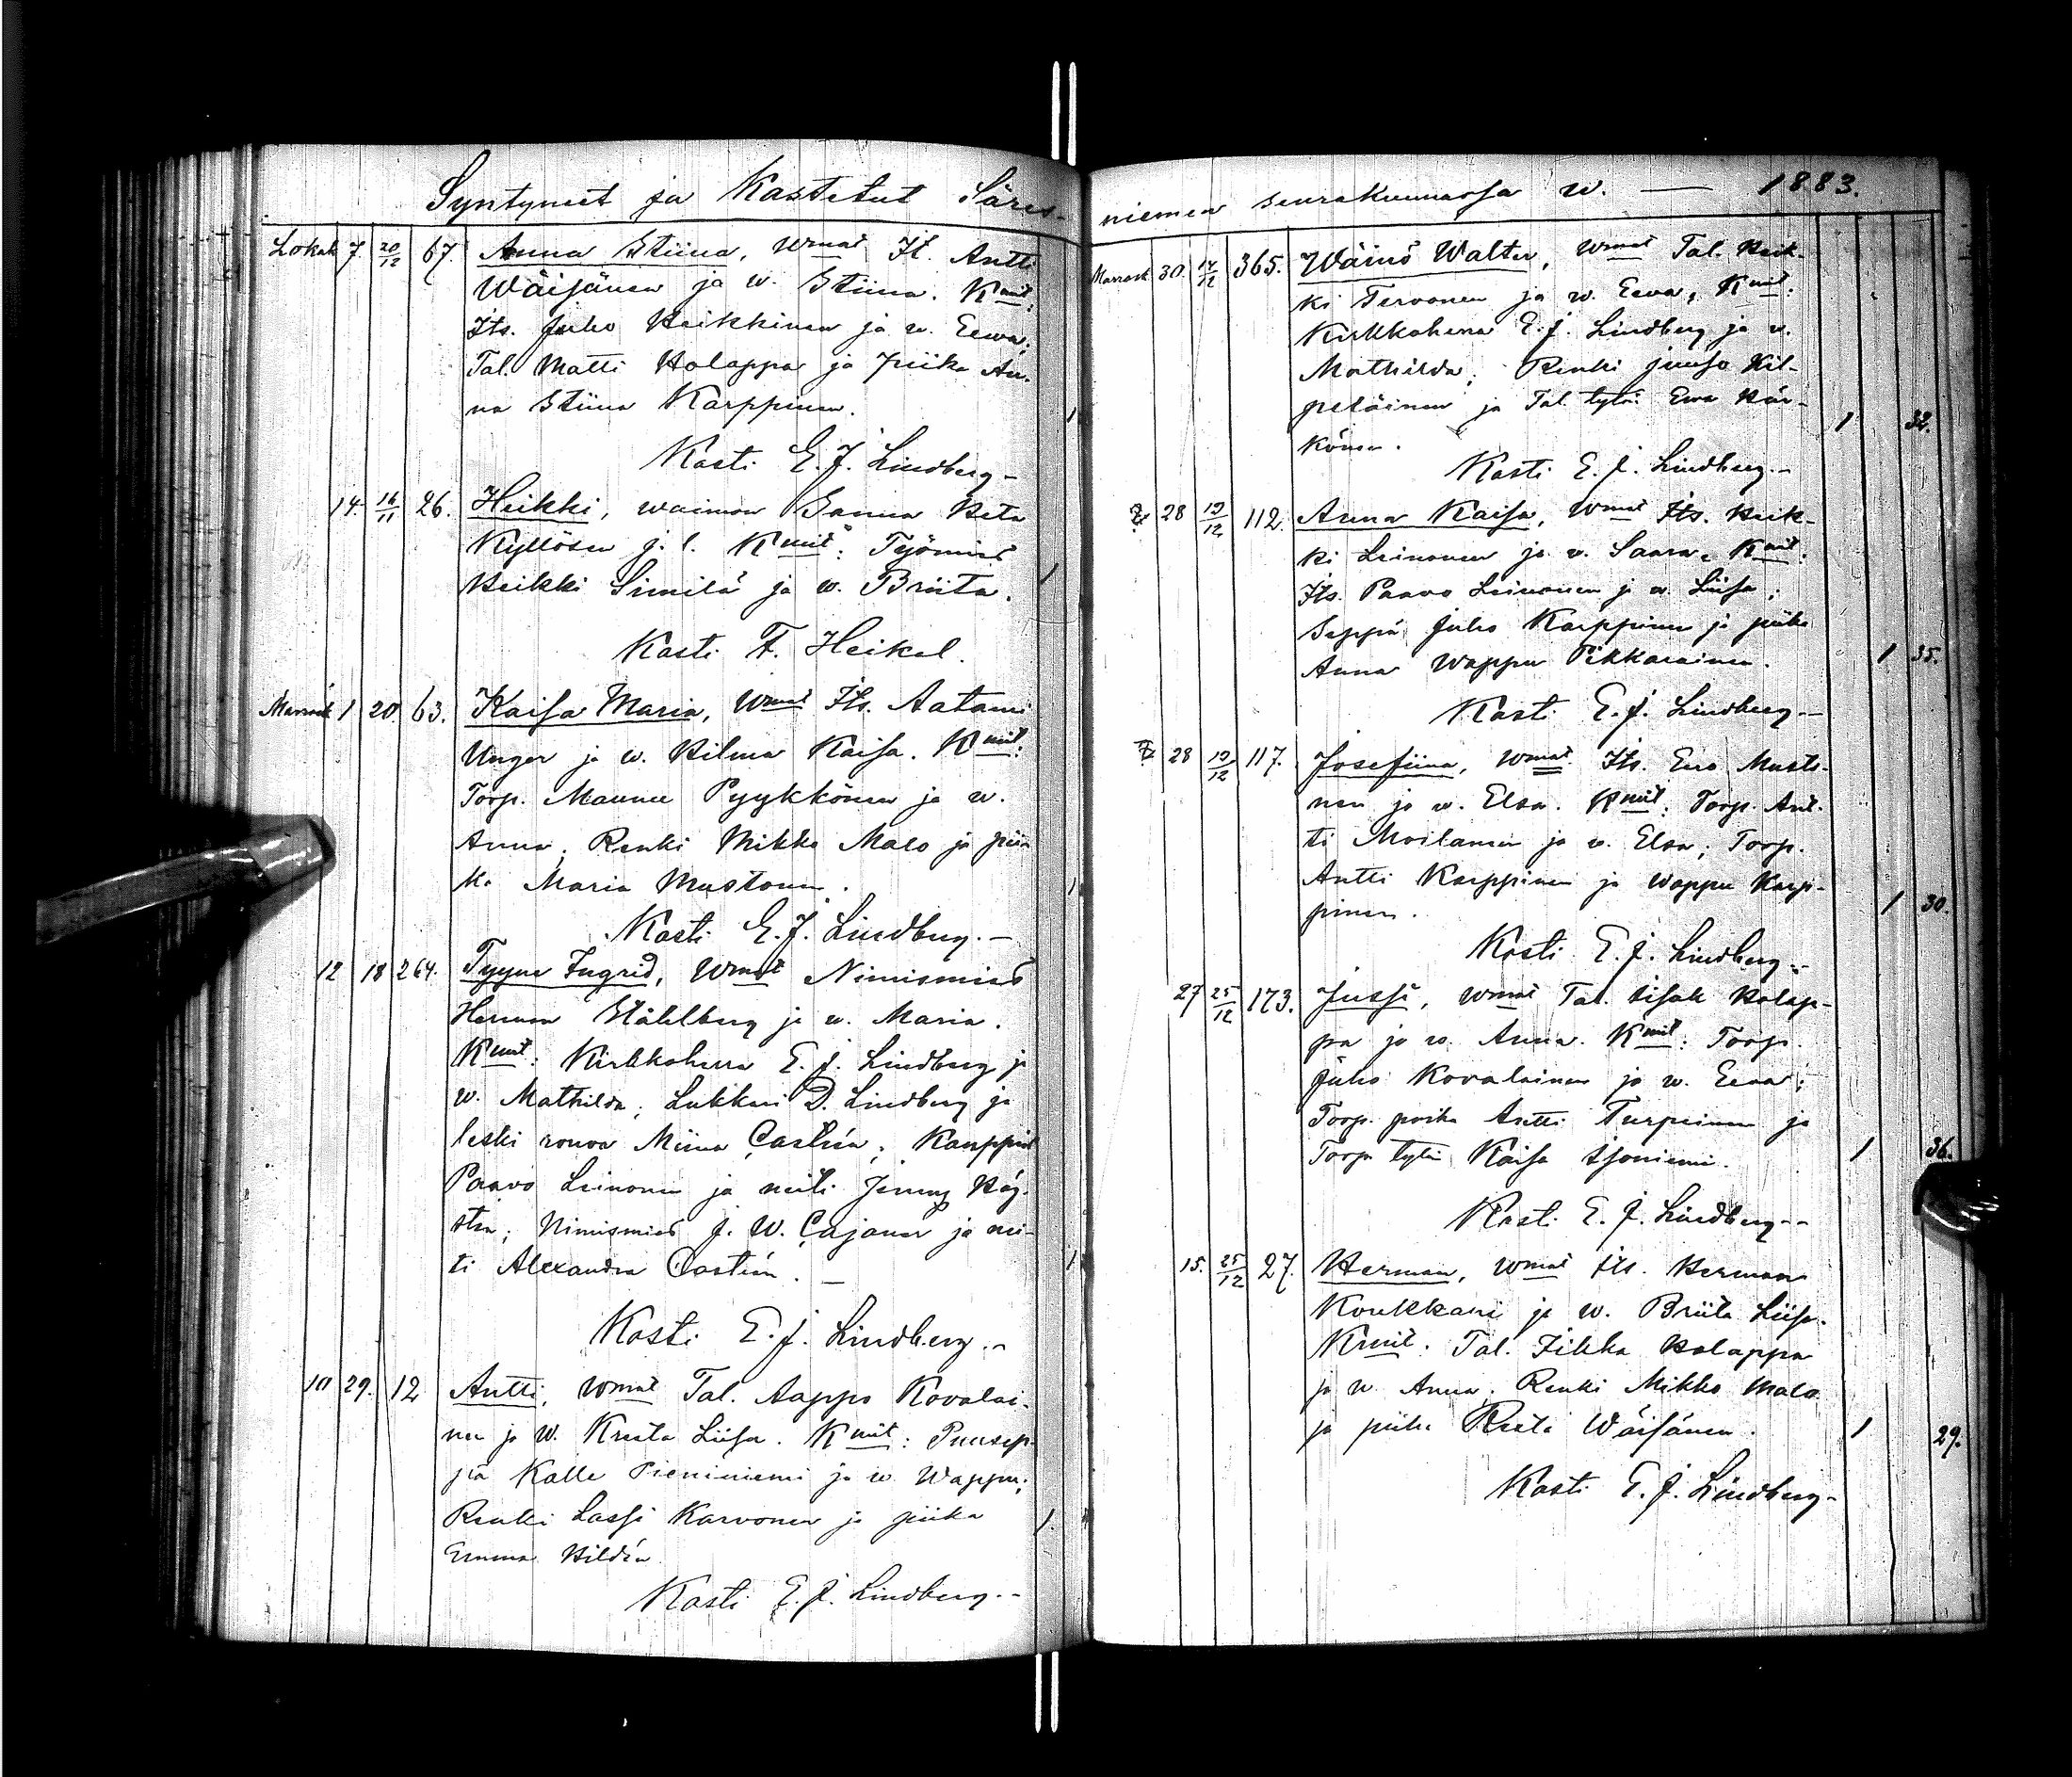 Syntyneet ja Kastetut Säres-
Lokak 7. 20/12 67. Anna Stiina, Wmat It. Antti
Wäisänen ja w. Stiina. Kmit:
Its. Juho Heikkinen ja w. Eewa;
Tal. Matti Holappa ja piika An-
na Stiina Karppinen.
1
Kasti E. J. Lindberg-
14. 16/11 26. Heikki, waimon Sanna Reta
Kyllösen j. l. Kmit: Työmies
Heikki Similä ja w. Briita.
1
Kasti F. Heikel.
Marrask 1 20. 63. Kaisa Maria, Wmat Its. Aatami
Unger ja w. Hilma Kaisa. Kmit:
Torp. Maunu Pyykkönen ja w.
Anna; Renki Mikko Malo ja pii-
ka Maria Mustonen.
1
Kasti E. J. Lindberg.-
12 18 264. Tyyne Ingrid, Wmat Nimismies
Herman Ståhlberg ja w. Maria.
Kmit: Kirkkoherra E. J. Lindberg ja
w. Mathilda; Lukkari D. Lindberg ja
leski rouva Miina Castrén; Kauppias
Paavo Leinonen ja neiti Jenny Hög-
sten; Nimismies J. W. Cajanus ja nei-
ti Alexandra Castrén. -
1
Kasti E. J. Lindberg.-
10 29. 12 Antti, Wmat Tal. Aappo Kovalai-
nen ja W. Kreeta Liisa. Kmit: Puusep-
pä Kalle Pieniniemi ja w. Wappu;
Renki Lassi Karvonen ja piika
1.
Emma Hildén
Kasti E. J. Lindberg.-
niemen seurakunnassa w. — 1883.
Marrask 30. 14/12 365. Wäinö Walter, Wmat Tal. Heik-
ki Tervonen ja w. Eeva, Kmit:
Kirkkoherra E. J. Lindberg ja w.
Mathilda; Renki Juuso Kil-
peläinen ja Tal. tytär Eeva Här-
könen.
1 32.
Kasti E. J. Lindberg.-
28 19/12 112. Anna Kaisa, Wmat Its. Heik-
ki Leinonen ja w. Saara. Kmit:
Its. Paavo Leinonen ja w. Liisa;
Seppä Juho Karppinen ja piika
Anna Wappu Pikkarainen.
1 35.
Kasti E. J. Lindberg.-
28 19/12 117. Josefiina, Wmat Its. Eero Musto-
nen ja w. Elsa. Kmit: Torp. Ant-
ti Moilanen ja w. Elsa; Torp.
Antti Karppinen ja Wappu Karp-
pinen.
1 30.
Kasti E. J. Lindberg.-
27 25/12 173. Jussi, Wmat Tal. Iisak Holap-
pa ja w. Anna. Kmit: Torp.
Juho Kovalainen ja w. Eeva;
Torp. poika Antti Turpeinen ja
Torp. tytär Kaisa Isoniemi.
1 36.
Kasti E. J. Lindberg.-
15. 25/12 27. Herman, Wmat Its. Herman
Koukkari ja w. Briita Liisa.
Kmit. Tal. Iikka Holappa
ja w. Anna; Renki Mikko Malo
ja piika Reeta Wäisänen.
1 29.
Kasti E. J. Lindberg-